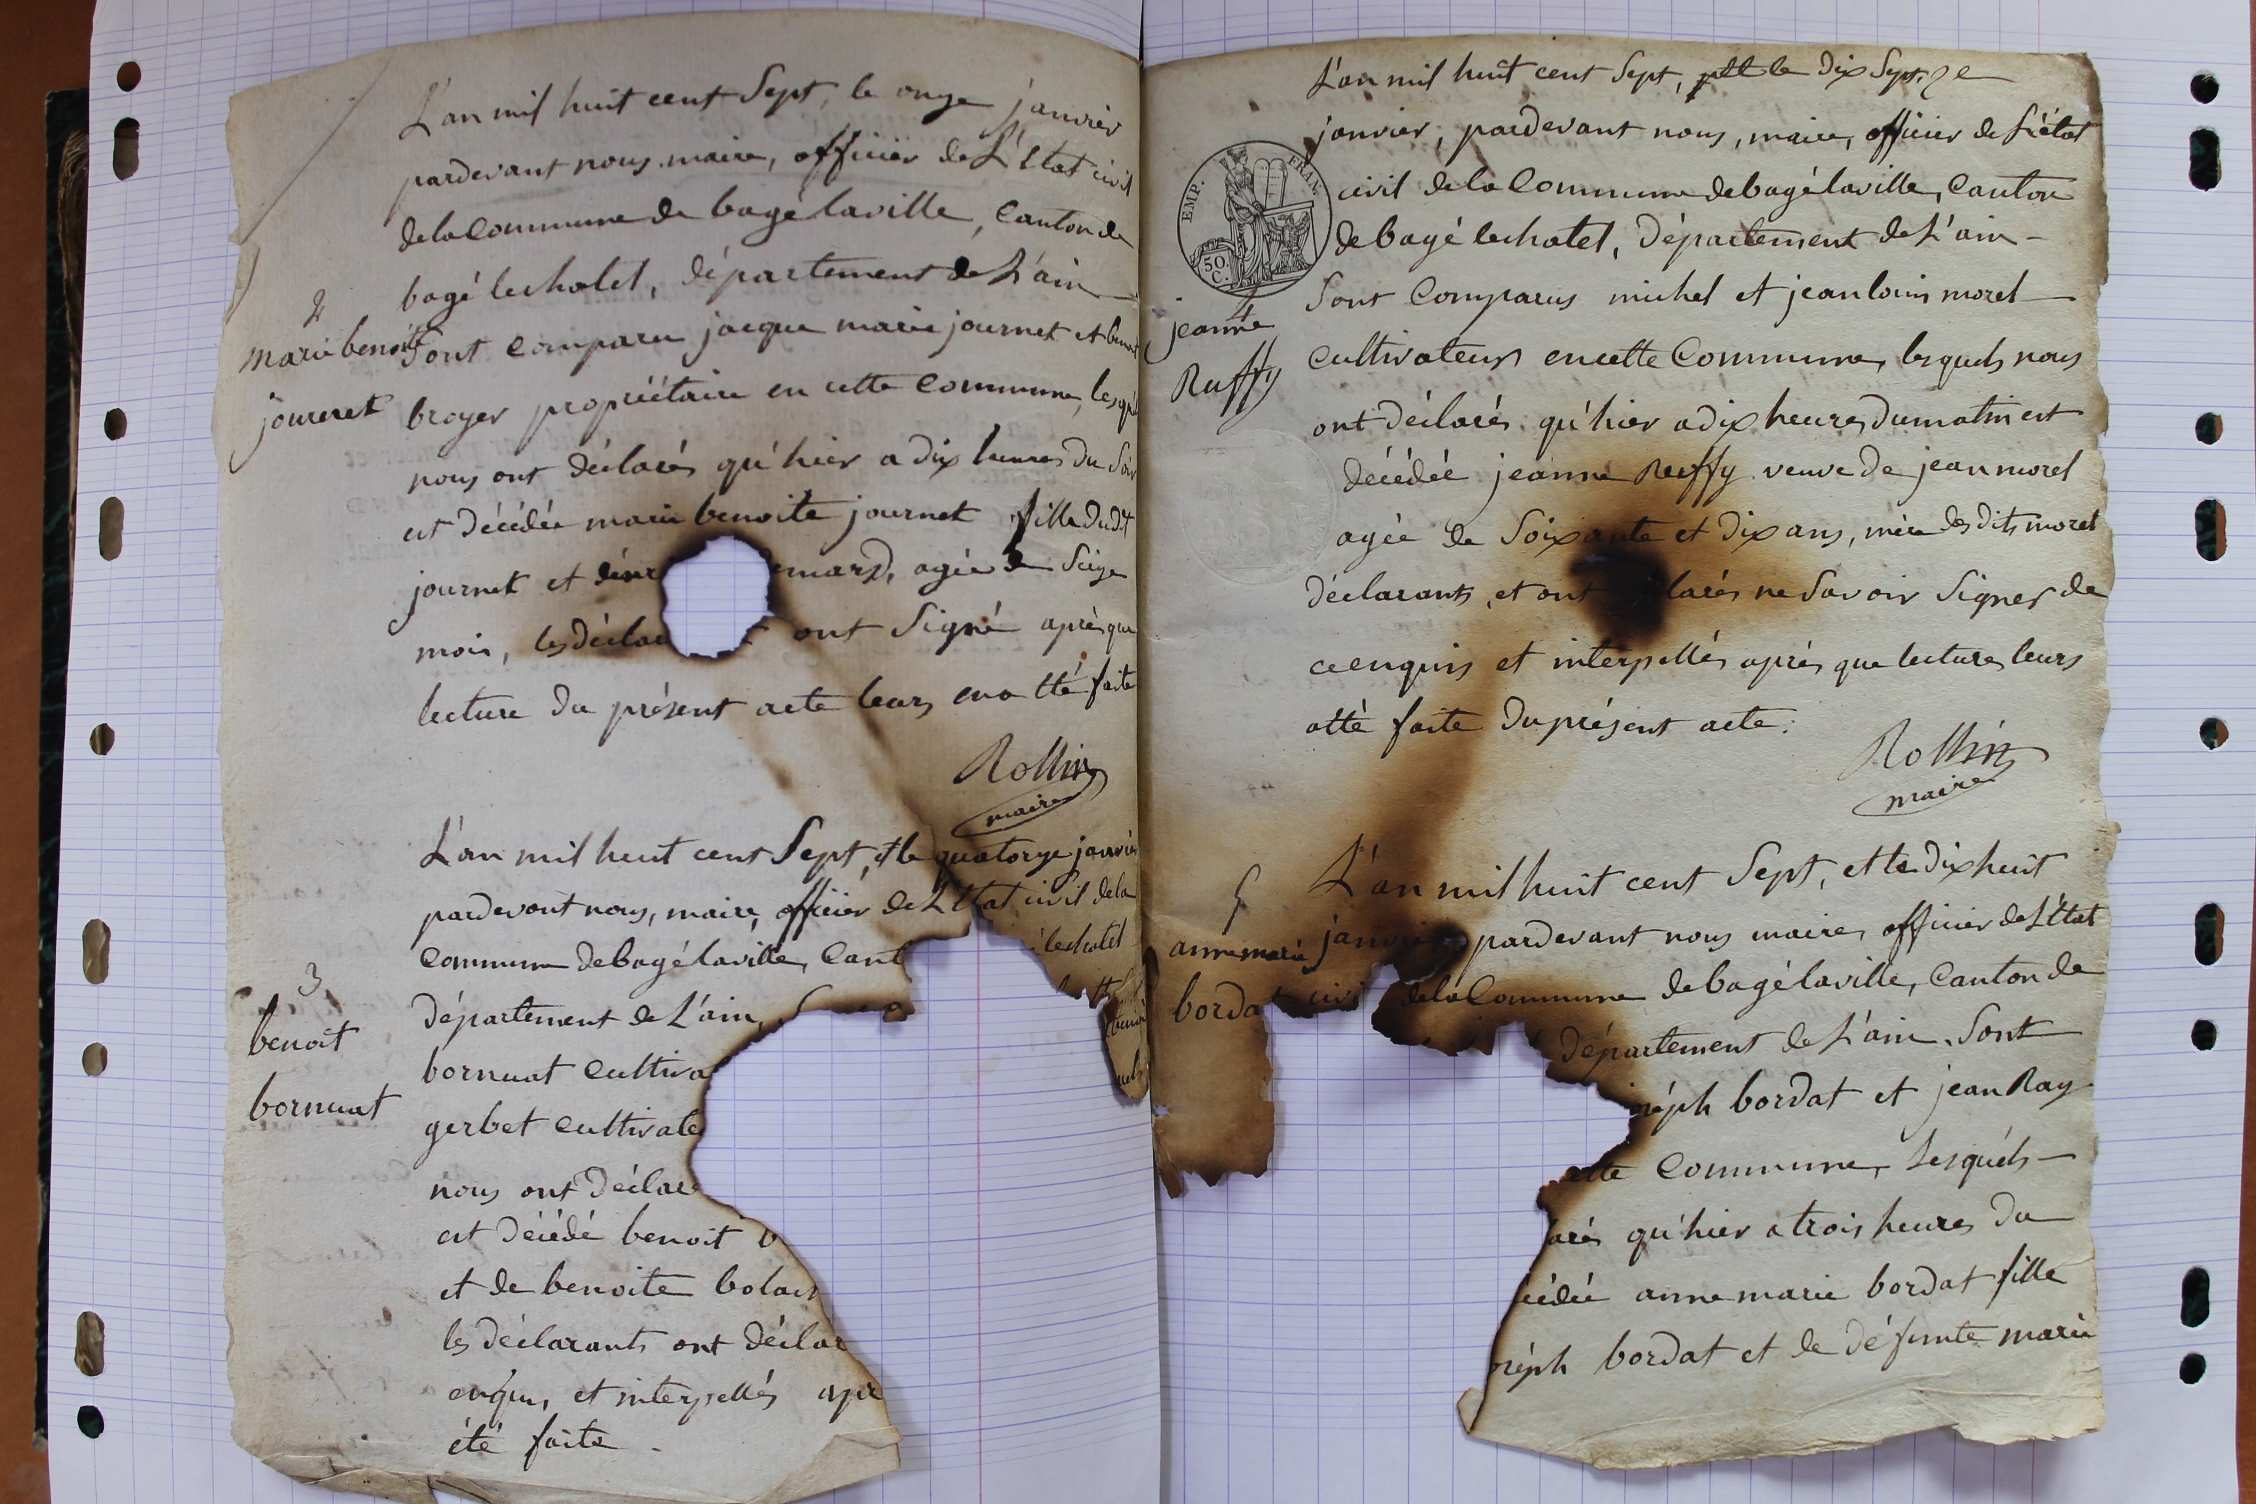 L'an mil huit cent Sept, le onze janvier
pardevant nous maire, officier de L'Etat civil
de la Commune de bagé laville, Canton de
bagé lechatel, département de L'ain
2
marie benoite
journet
Sont comparu jacque marie journet et
broyer propriétaire en cette Commune,
nous ont déclarés qu'hier a dix heures du Soir
est décédée marie benoite journet fille dudit
journet et agée de Seize
mois, ont Signé après que
lecture du présent acte leurs en a été faite
Rollin
maire
L'an mil huit cent Sept, et le quatorze janvier
pardevant nous, maire, officier de L'Etat civil de la
Commune de bagé laville, Cant lechatel
3
benoit
bornuat
département de L'ain,
bornuat Cultiva
gerbet Cultivate
nous ont déclar
est décédé benoit b
et de benoite
les déclarants ont déclar
enquis, et interpellés apr
été faite
L'an mil huit cent Sept, le dix Sept
janvier, pardevant nous, maire, officier de L'état
EMP. FRAN.
50.
C.
civil de la Commune de bagé laville, Canton
de bagé lechatel, Département de L'ain
4
jeanne
Ruffy
Sont Comparus michel et jean louis morel
cultivateurs en cette Commune, lesquels nous
ont déclarés qu'hier a dix heures du matin est
décédée jeanne Ruffy veuve de jean morel
agée de Soixante et dix ans, mère des dits morel
déclarants, et ont larés ne Savoir Signer de
ce enquis et interpellés après que lecture leurs
a été faite du présent acte.
Rollin
maire
5
anne marie
bordat
L'an mil huit cent Sept, et le dix huit
janvier pardevant nous maire, officier de L'Etat
civil de la Commune de bagé laville, Canton de
département de L'ain. Sont
séph bordat et jean Ray
ette Commune, Lesquels
arés qu'hier a trois heures du
cédée anne marie bordat fille
oséph bordat et de défunte marie